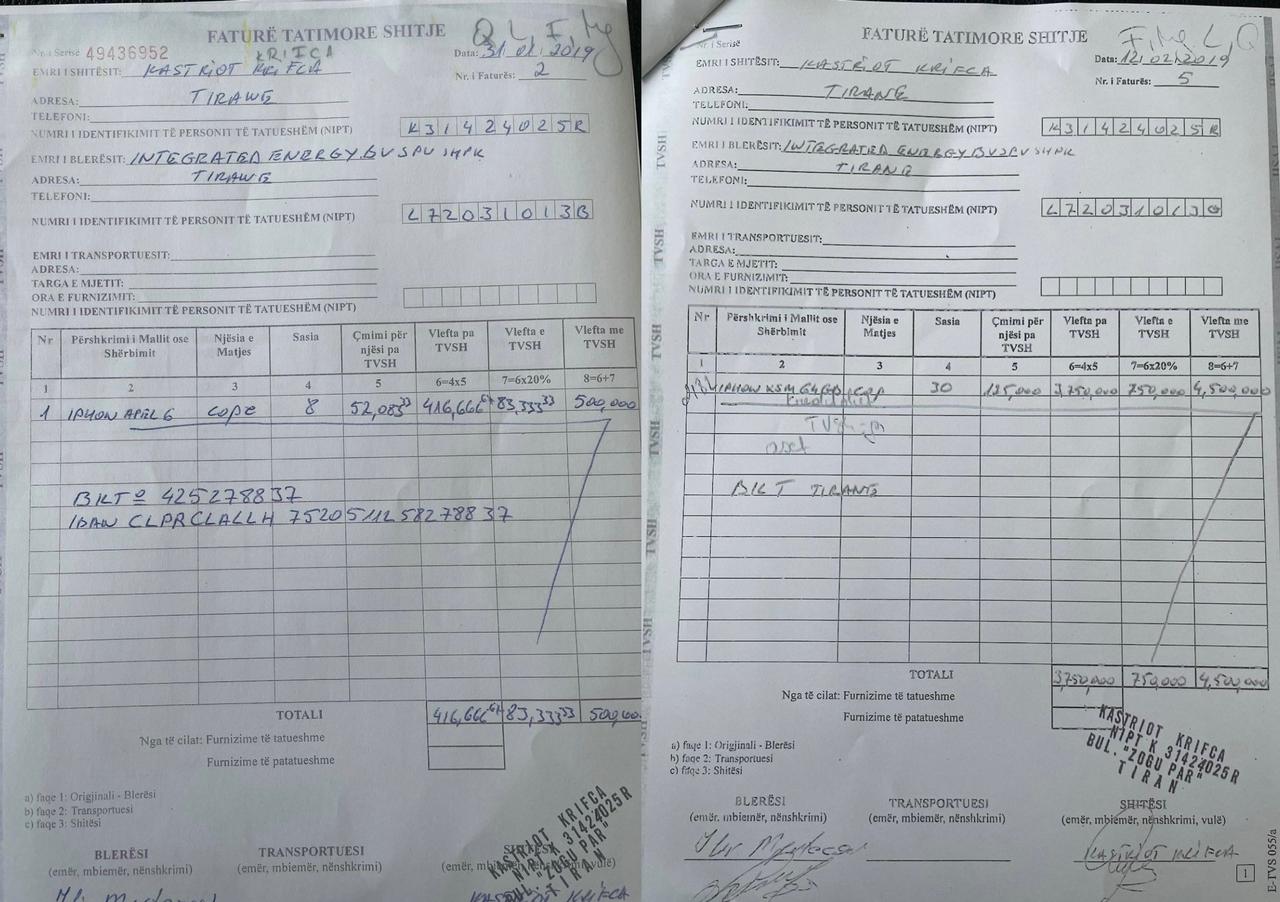 FATURË TATIMORE SHITJE
Nr. i Serisë 49436952
KRIFCA
Data: 31.01.2019
EMRI I SHITËSIT: KASTRIOT KRIFCA
Nr. i Faturës: 2
ADRESA: TIRANE
TELEFONI:
NUMRI I IDENTIFIKIMIT TË PERSONIT TË TATUESHËM (NIPT) K31424025R
EMRI I BLERËSIT: INTEGRATED ENERGY BV SPV SHPK
ADRESA: TIRANE
TELEFONI:
NUMRI I IDENTIFIKIMIT TË PERSONIT TË TATUESHËM (NIPT) L72031013B
EMRI I TRANSPORTUESIT:
ADRESA:
TARGA E MJETIT:
ORA E FURNIZIMIT:
NUMRI I IDENTIFIKIMIT TË PERSONIT TË TATUESHËM (NIPT)
Nr Përshkrimi i Mallit ose Shërbimit Njësia e Matjes Sasia Çmimi për njësi pa TVSH Vlefta pa TVSH Vlefta e TVSH Vlefta me TVSH
1 2 3 4 5 6=4x5 7=6x20% 8=6+7
1 IPHON APEL 6 cope 8 52,083 33 416,666 67 83,333 33 500,000
BKT º 425278837
IBAN CLPRCLALLH 7520 5112 582788 37
TOTALI 416,666 67 83,333 33 500,00
Nga të cilat: Furnizime të tatueshme
Furnizime të patatueshme
a) faqe 1: Origjinali - Blerësi
b) faqe 2: Transportuesi
c) faqe 3: Shitësi
KASTRIOT KRIFCA
NIPT K 31424025R
BUL. "ZOGU PAR"
TIRAN
BLERËSI TRANSPORTUESI
(emër, mbiemër, nënshkrimi) (emër, mbiemër, nënshkrimi) (emër, mbiemër, nënshkrimi, vulë)
KASTRIOT KRIFCA
FATURË TATIMORE SHITJE
Nr. i Serisë
Data: 12.02.2019
EMRI I SHITËSIT: KASTRIOT KRIFCA
Nr. i Faturës: 5
ADRESA: TIRANE
TELEFONI:
NUMRI I IDENTIFIKIMIT TË PERSONIT TË TATUESHËM (NIPT) K31424025R
EMRI I BLERËSIT: INTEGRATED ENERGY BV SPV SHPK
ADRESA: TIRANE
TELEFONI:
NUMRI I IDENTIFIKIMIT TË PERSONIT TË TATUESHËM (NIPT) L72031013B
EMRI I TRANSPORTUESIT:
ADRESA:
TARGA E MJETIT:
ORA E FURNIZIMIT:
NUMRI I IDENTIFIKIMIT TË PERSONIT TË TATUESHËM (NIPT)
Nr Përshkrimi i Mallit ose Shërbimit Njësia e Matjes Sasia Çmimi për njësi pa TVSH Vlefta pa TVSH Vlefta e TVSH Vlefta me TVSH
1 2 3 4 5 6=4x5 7=6x20% 8=6+7
IPHON XSM 64GB 30 125,000 3,750,000 750,000 4,500,000
BKT TIRANE
TOTALI 3,750,000 750,000 4,500,000
Nga të cilat: Furnizime të tatueshme
Furnizime të patatueshme
a) faqe 1: Origjinali - Blerësi
b) faqe 2: Transportuesi
c) faqe 3: Shitësi
KASTRIOT KRIFCA
NIPT K 31424025R
BUL. "ZOGU PAR"
TIRAN
BLERËSI TRANSPORTUESI SHITËSI
(emër, mbiemër, nënshkrimi) (emër, mbiemër, nënshkrimi) (emër, mbiemër, nënshkrimi, vulë)
KASTRIOT KRIFCA
1
E-TVS 055/a
TVSH
TVSH
TVSH
TVSH
TVSH